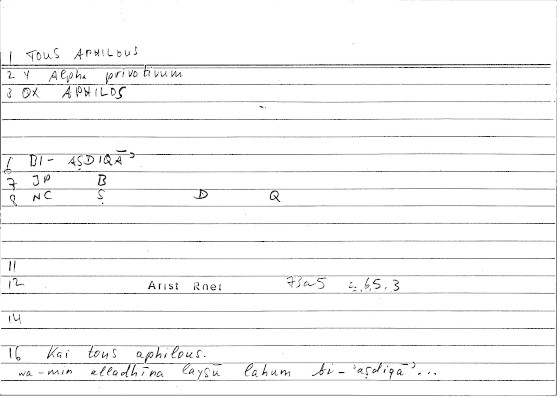 1 TOUS APHILOUS
2 Y Alpha privativum
3 OX APHILOS
6 BI- AṢDIQĀʾ
7 JP B
8 NC Ṣ D Q
11
12 Arist Rhet 73a5 65.3
14
16 Kai tous aphilous.
wa-min alladhīna laysū lahum bi-ʾaṣdiqāʾ...